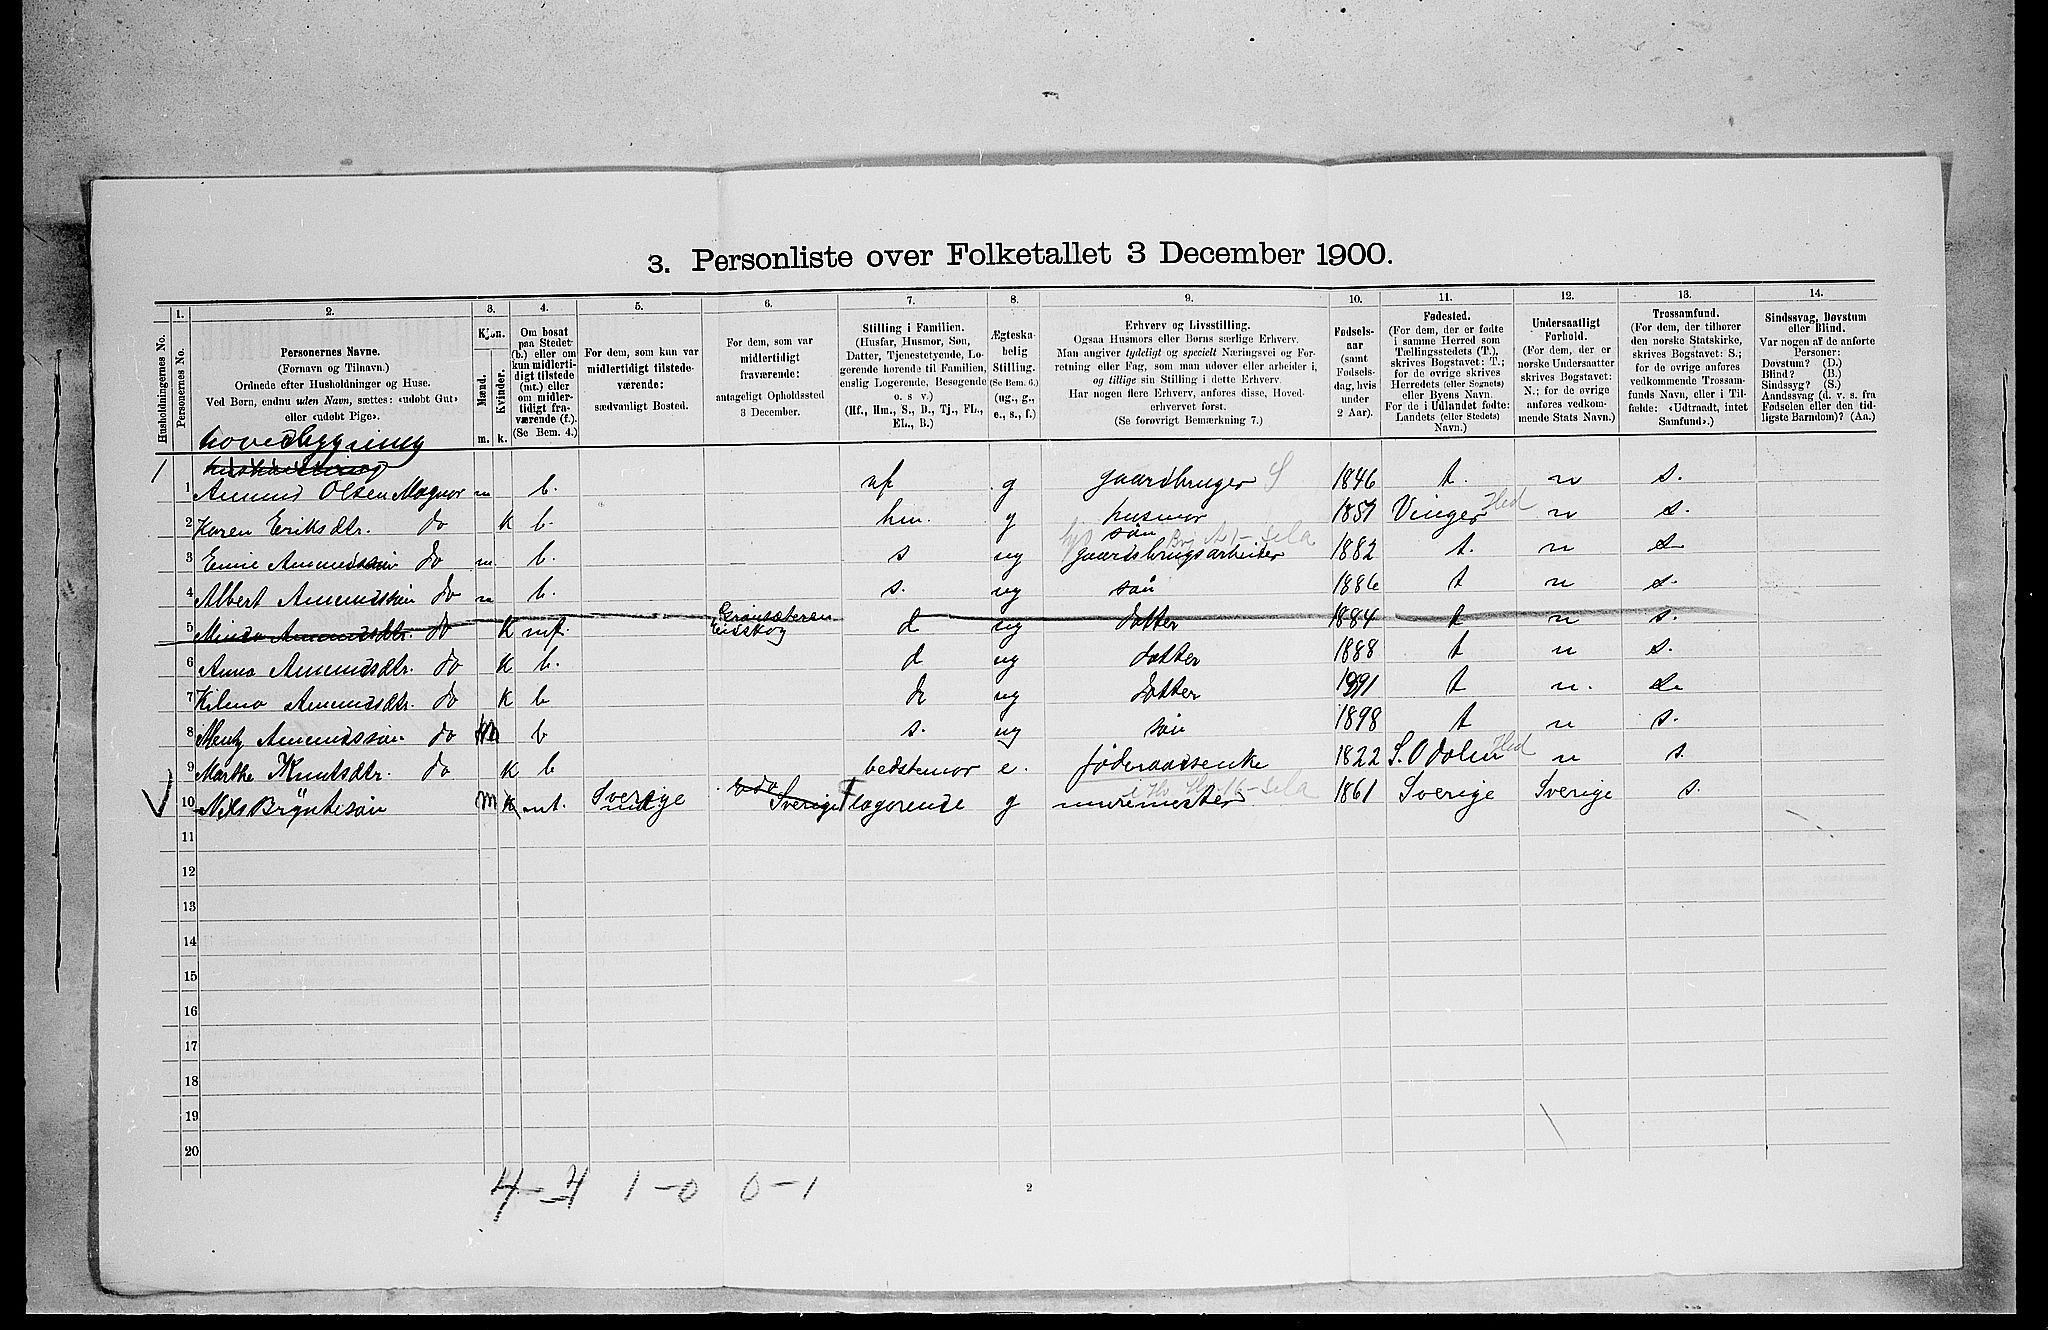 3. Personliste over Folketallet 3 December 1900.
Husholdningernes No.
1.
Personernes No.
2.
Personernes Navne.
(Fornavn og Tilnavn.)
Ordnede efter Husholdninger og Huse.
Ved Børn, endnu uden Navn, sættes: «udøbt Gut»
eller «udøbt Pige».
3.
Kjøn.
Mænd.
Kvinder.
m. k.
4.
Om bosat
paa Stedet
(b.) eller om
kun midlerti-
digt tilstede
(mt.) eller
om midler-
tidigt fra-
værende (f.).
(Se Bem. 4.)
5.
For dem, som kun var
midlertidigt tilstede-
værende:
sædvanligt Bosted.
6.
For dem, som var
midlertidigt
fraværende:
antageligt Opholdssted
3 December.
7.
Stilling i Familien.
(Husfar, Husmor, Søn,
Datter, Tjenestetyende, Lo-
gerende hørende til Familien,
enslig Logerende, Besøgende
o. s. v.)
(Hf., Hm., S., D., Tj., FL.,
EL., B.)
8.
Ægteska-
belig
Stilling.
(Se Bem. 6.)
(ug., g.,
e., s., f.)
9.
Erhverv og Livsstilling.
Ogsaa Husmors eller Børns særlige Erhverv.
Man angiver tydeligt og specielt Næringsvei og For-
retning eller Fag, som man udøver eller arbeider i,
og tillige sin Stilling i dette Erhverv.
Har nogen flere Erhverv, anføres disse, Hoved-
erhvervet først.
(Se forøvrigt Bemærkning 7.)
10.
Fødsels-
aar
(samt
Fødsels-
dag, hvis
under
2 Aar).
11.
Fødested.
(For dem, der er fødte
i samme Herred som
Tællingsstedets (T.),
skrives Bogstavet: T.;
for de øvrige skrives
Herredets (eller Sognets)
eller Byens Navn.
For de i Udlandet fødte:
Landets (eller Stedets)
Navn.)
12.
Undersaatligt
Forhold.
(For dem, der er
norske Undersaatter
skrives Bogstavet:
N.; for de øvrige
anføres vedkom-
mende Stats Navn.)
13.
Trossamfund.
(For dem, der tilhører
den norske Statskirke,
skrives Bogstavet: S.;
for de øvrige anføres
vedkommende Trossam-
funds Navn, eller i Til-
fælde: «Udtraadt, intet
Samfund».)
14.
Sindssvag, Døvstum
eller Blind.
Var nogen af de anførte
Personer:
Døvstum? (D.)
Blind? (B.)
Sindssyg? (S.)
Aandssvag (d. v. s. fra
Fødselen eller den tid-
ligste Barndom)? (Aa.)
hovedbygning
1
1 Amund Olsen Magnor m b. g gaardbruger S 1846 t. n s.
2 Karen Eriksdtr. do k b. hm. g husmor 1857 Vinger Hed n s.
søn
3 Amundssøn do m b. s ug gaardsbrugsarbeider 1882 t. n s
4 Albert Amundssøn do m b. s. ug søn 1886 t n s.
Eidskog
5 Amundsdtr. do k mf. d ug datter 1884 t n s.
6 Anna Amundsdtr. do k b. d ug datter 1888 t n s.
7 Kilma Amundsdtr. do k b d ug datter 1891 t n. s.
8 Mentz Amundssøn do m b s. ug søn 1898 t n s.
9 Marthe Knutsdtr. do k b bedstemor e. føderaadsenke 1822 S. Odalen Hed n s.
10 Nils Bryntesøn m k mt. Sverige Sverige logerende g murmester 1861 Sverige Sverige s.
11
12
13
14
15
16
17
18
19
20
4-4 1-0 0-1
2